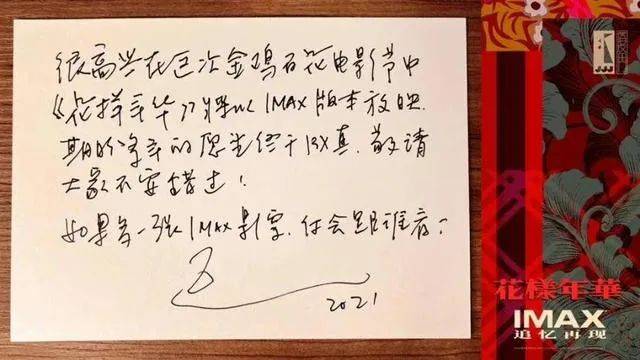 很高兴在是次金鸡百花电影节中
《花样年华》得以IMAX版本放映.
期盼多年的愿望终于成真. 敬请
大家不要错过!
如果多一张IMAX影票, 你会跟谁看?
2021
花樣年華
IMAX
追忆再现